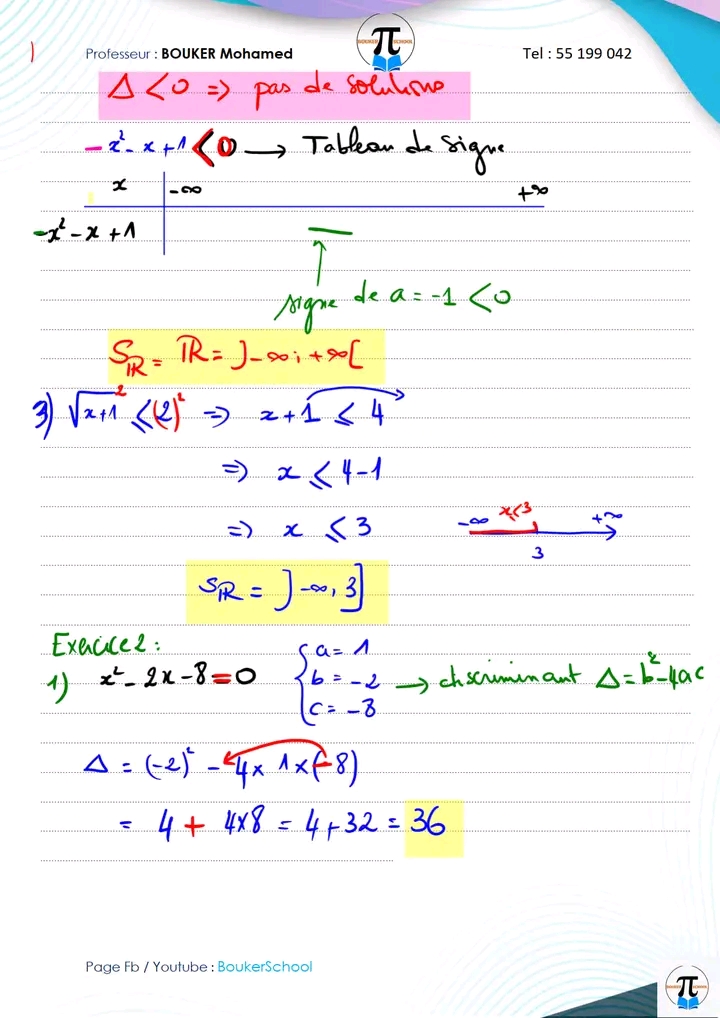 Professeur : BOUKER Mohamed
BOUKER π SCHOOL
Tel : 55 199 042
Δ < 0 => pas de solutions
-x² - x + 1 < 0 → Tableau de signe
x | -∞ +∞
-x² - x + 1 | —
signe de a = -1 < 0
S_IR = IR = ]-∞ ; +∞[
3) √x+1² ≤ (2)² => x + 1 ≤ 4
=> x ≤ 4 - 1
=> x ≤ 3
-∞ x≤3 +∞
3
S_IR = ]-∞, 3]
Exercice 2 :
1) x² - 2x - 8 = 0 { a = 1
b = -2 → discriminant Δ = b² - 4ac
c = -8
Δ = (-2)² - 4 × 1 × (-8)
= 4 + 4×8 = 4 + 32 = 36
Page Fb / Youtube : BoukerSchool
BOUKER π SCHOOL